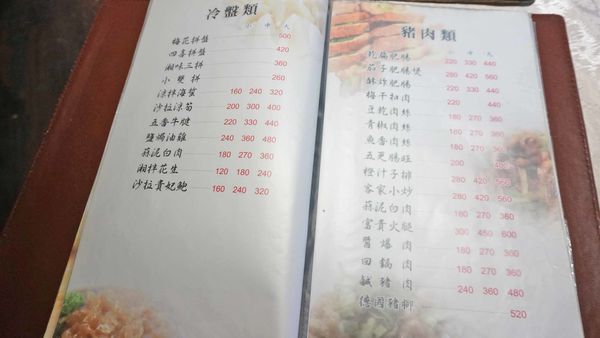 冷盤類
小 中 大
梅花拼盤 500
四喜拼盤 420
湘味三拼 360
小雙拼 260
涼拌海蜇 160 240 320
沙拉涼筍 200 300 400
五香牛腱 220 330 440
鹽焗油雞 240 360 480
蒜泥白肉 180 270 360
湘拌花生 120 180 240
沙拉貴妃鮑 160 240 320
豬肉類
小 中 大
乾扁肥腸 220 330 440
茄子肥腸煲
酥炸肥腸
梅干扣肉
豆乾肉絲 180 270 360
青椒肉絲 180 270 360
魚香肉絲 180 270 360
五更腸旺 200 400
橙汁子排 280 420 560
客家小炒 280 420 560
蒜泥白肉 180 270 360
富貴火腿 300 450 600
醬爆肉 180 270 360
回鍋肉 180 270 360
鹹豬肉 240 360 480
德國豬腳 520